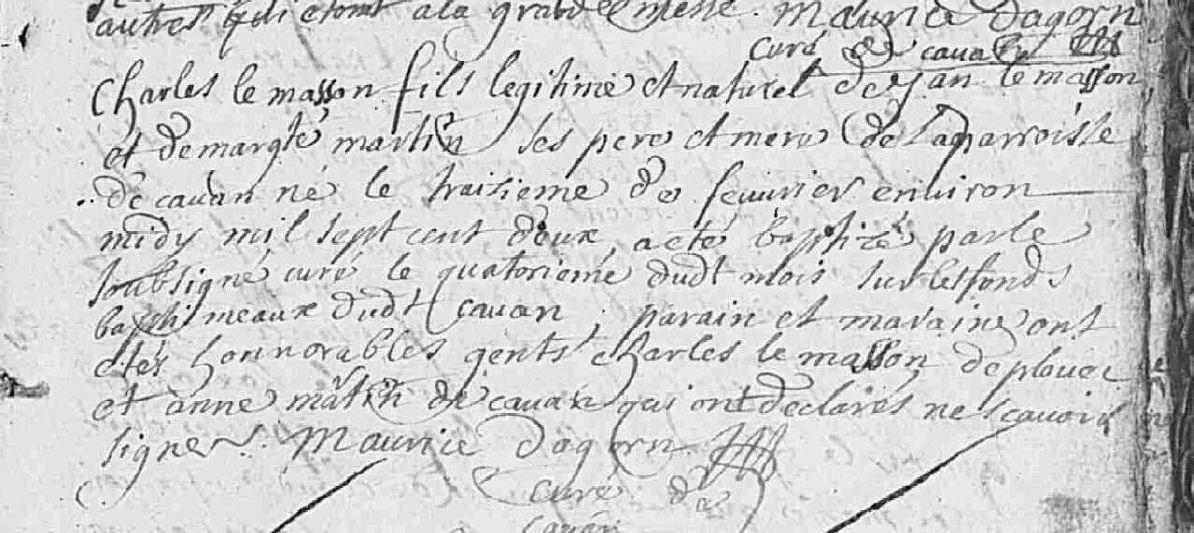 autres qui etoint a la grande messe. Maurice Dagorn
curé de cavan
Charles le masson fils legitime et naturel de jan le masson
et de margte martin ses pere et mere de la parroisse
de cavan né le traisieme de feuvrier environ
midy mil sept cent deux a eté baptizé par le
soubsigné curé le quatorsieme dudt mois sur les fonds
baptismeaux dudt Cavan, parain et maraine ont
etés honnorables gents charles le masson de plouec
et anne martin de cavan qui ont declarés ne scavoir
signer. Maurice Dagorn
curé de
cavan